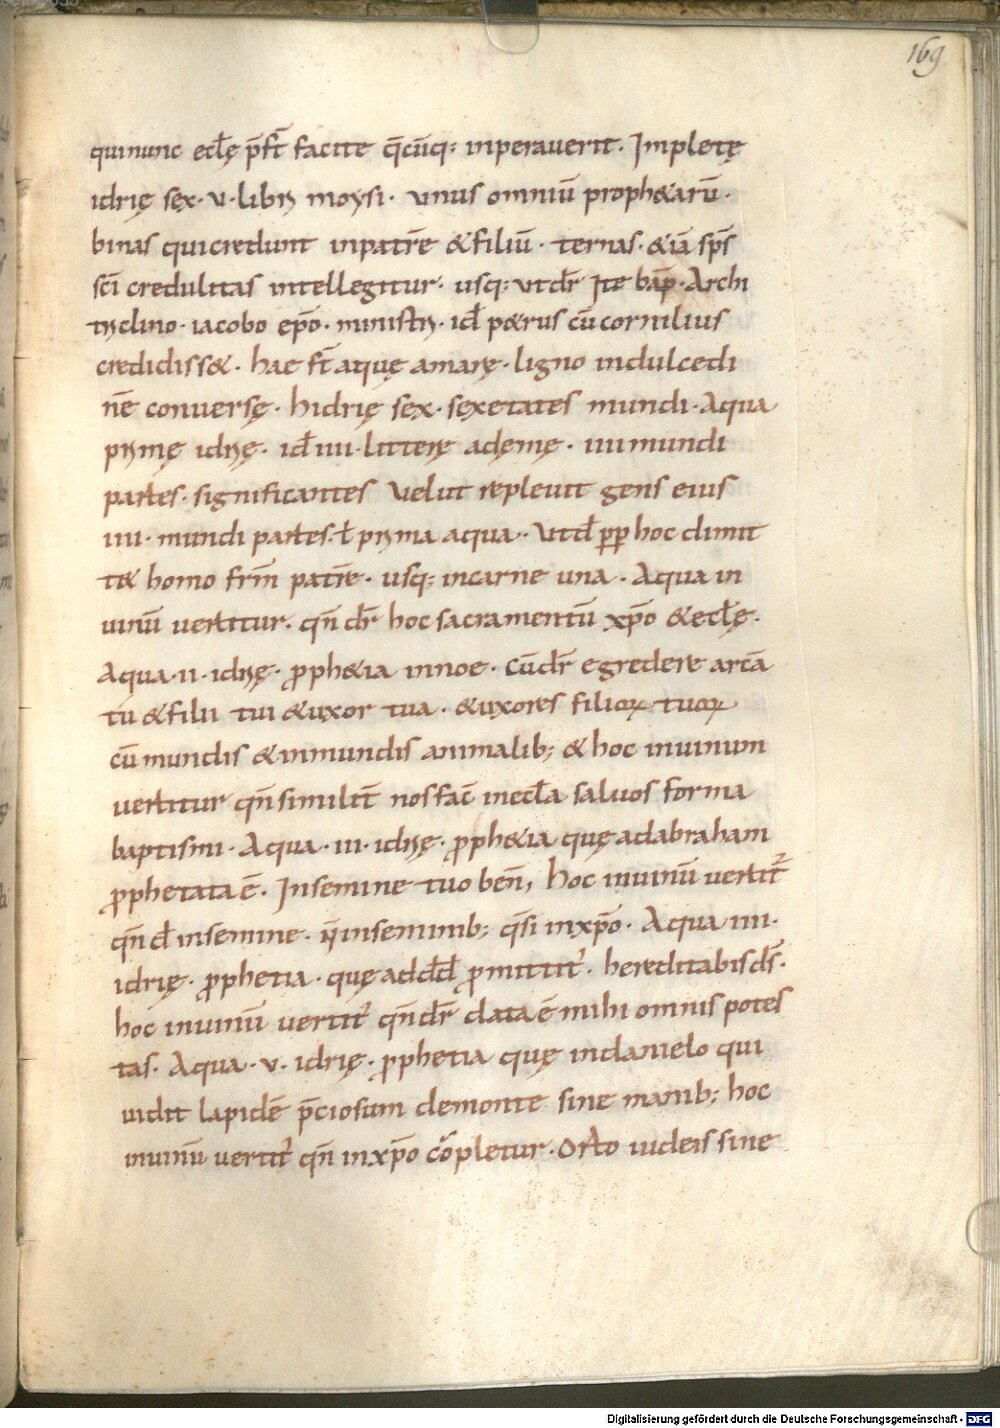 169
quinunc ecl̄ę p̄ſt̄ facite q̄cūq: inperauerit. Impletę
idrię sex. v. libri moysi. unus omniū proph&arū.
binas quicredunt inpatrē &filiū. ternas. &iā sp̄s
sc̄i credulitas intellegitur. usq: utdr̄ Ite bap̄. Archi
triclino. iacobo ep̄o. ministri. id̄ p&rus cū cornilius
credidiss&. hae st̄ aquę amarę. ligno indulcedi
nē conuersę. hidrię sex. sex etates mundi. Aqua
primę idrię. id̄ iiii. litterę adęmę. iiii mundi
partes. significantes Velut repleuit gens eius
iiii. mundi partes. ł prima aqua. Vtd̄ pp̄ hoc dimit
t& homo fr̄m patrē. usq: incarne una. Aqua in
uinū uertitur. qn̄ dr̄ hoc sacramentū xp̄o &ecl̄ę.
Aqua. ii. idrię. proph&ia innoe. cūdr̄ egredere arcā
tu &filii tui &uxor tua. &uxores filioꝝ tuoꝝ
cū mundis &inmundis animalib; &hoc inuinum
uertitur qn̄ similit̄ nos fac̄ inecl̄a saluos forma
baptismi. Aqua. iii. idrię. proph&ia quę adabraham
prophetata ē. Insemine tuo ben̄, hoc inuinū uertit᷑
qn̄ d̄ insemine. ñ inseminib; q̄si inxp̄o. Aqua iiii.
idrię. prophetia. quę addd̄ promittit᷑. hereditabis ds̄.
hoc inuinū uertit᷑ qn̄ dr̄ data ē mihi omnis potes
tas. Aqua. v. idrię. prophetia quę indanielo qui
uidit lapidē p̄ciosum demonte sine manib; hoc
inuinū uertit᷑ qn̄ inxp̄o cōpletur. Orto iudeis sine
Digitalisierung gefördert durch die Deutsche Forschungsgemeinschaft - DFG